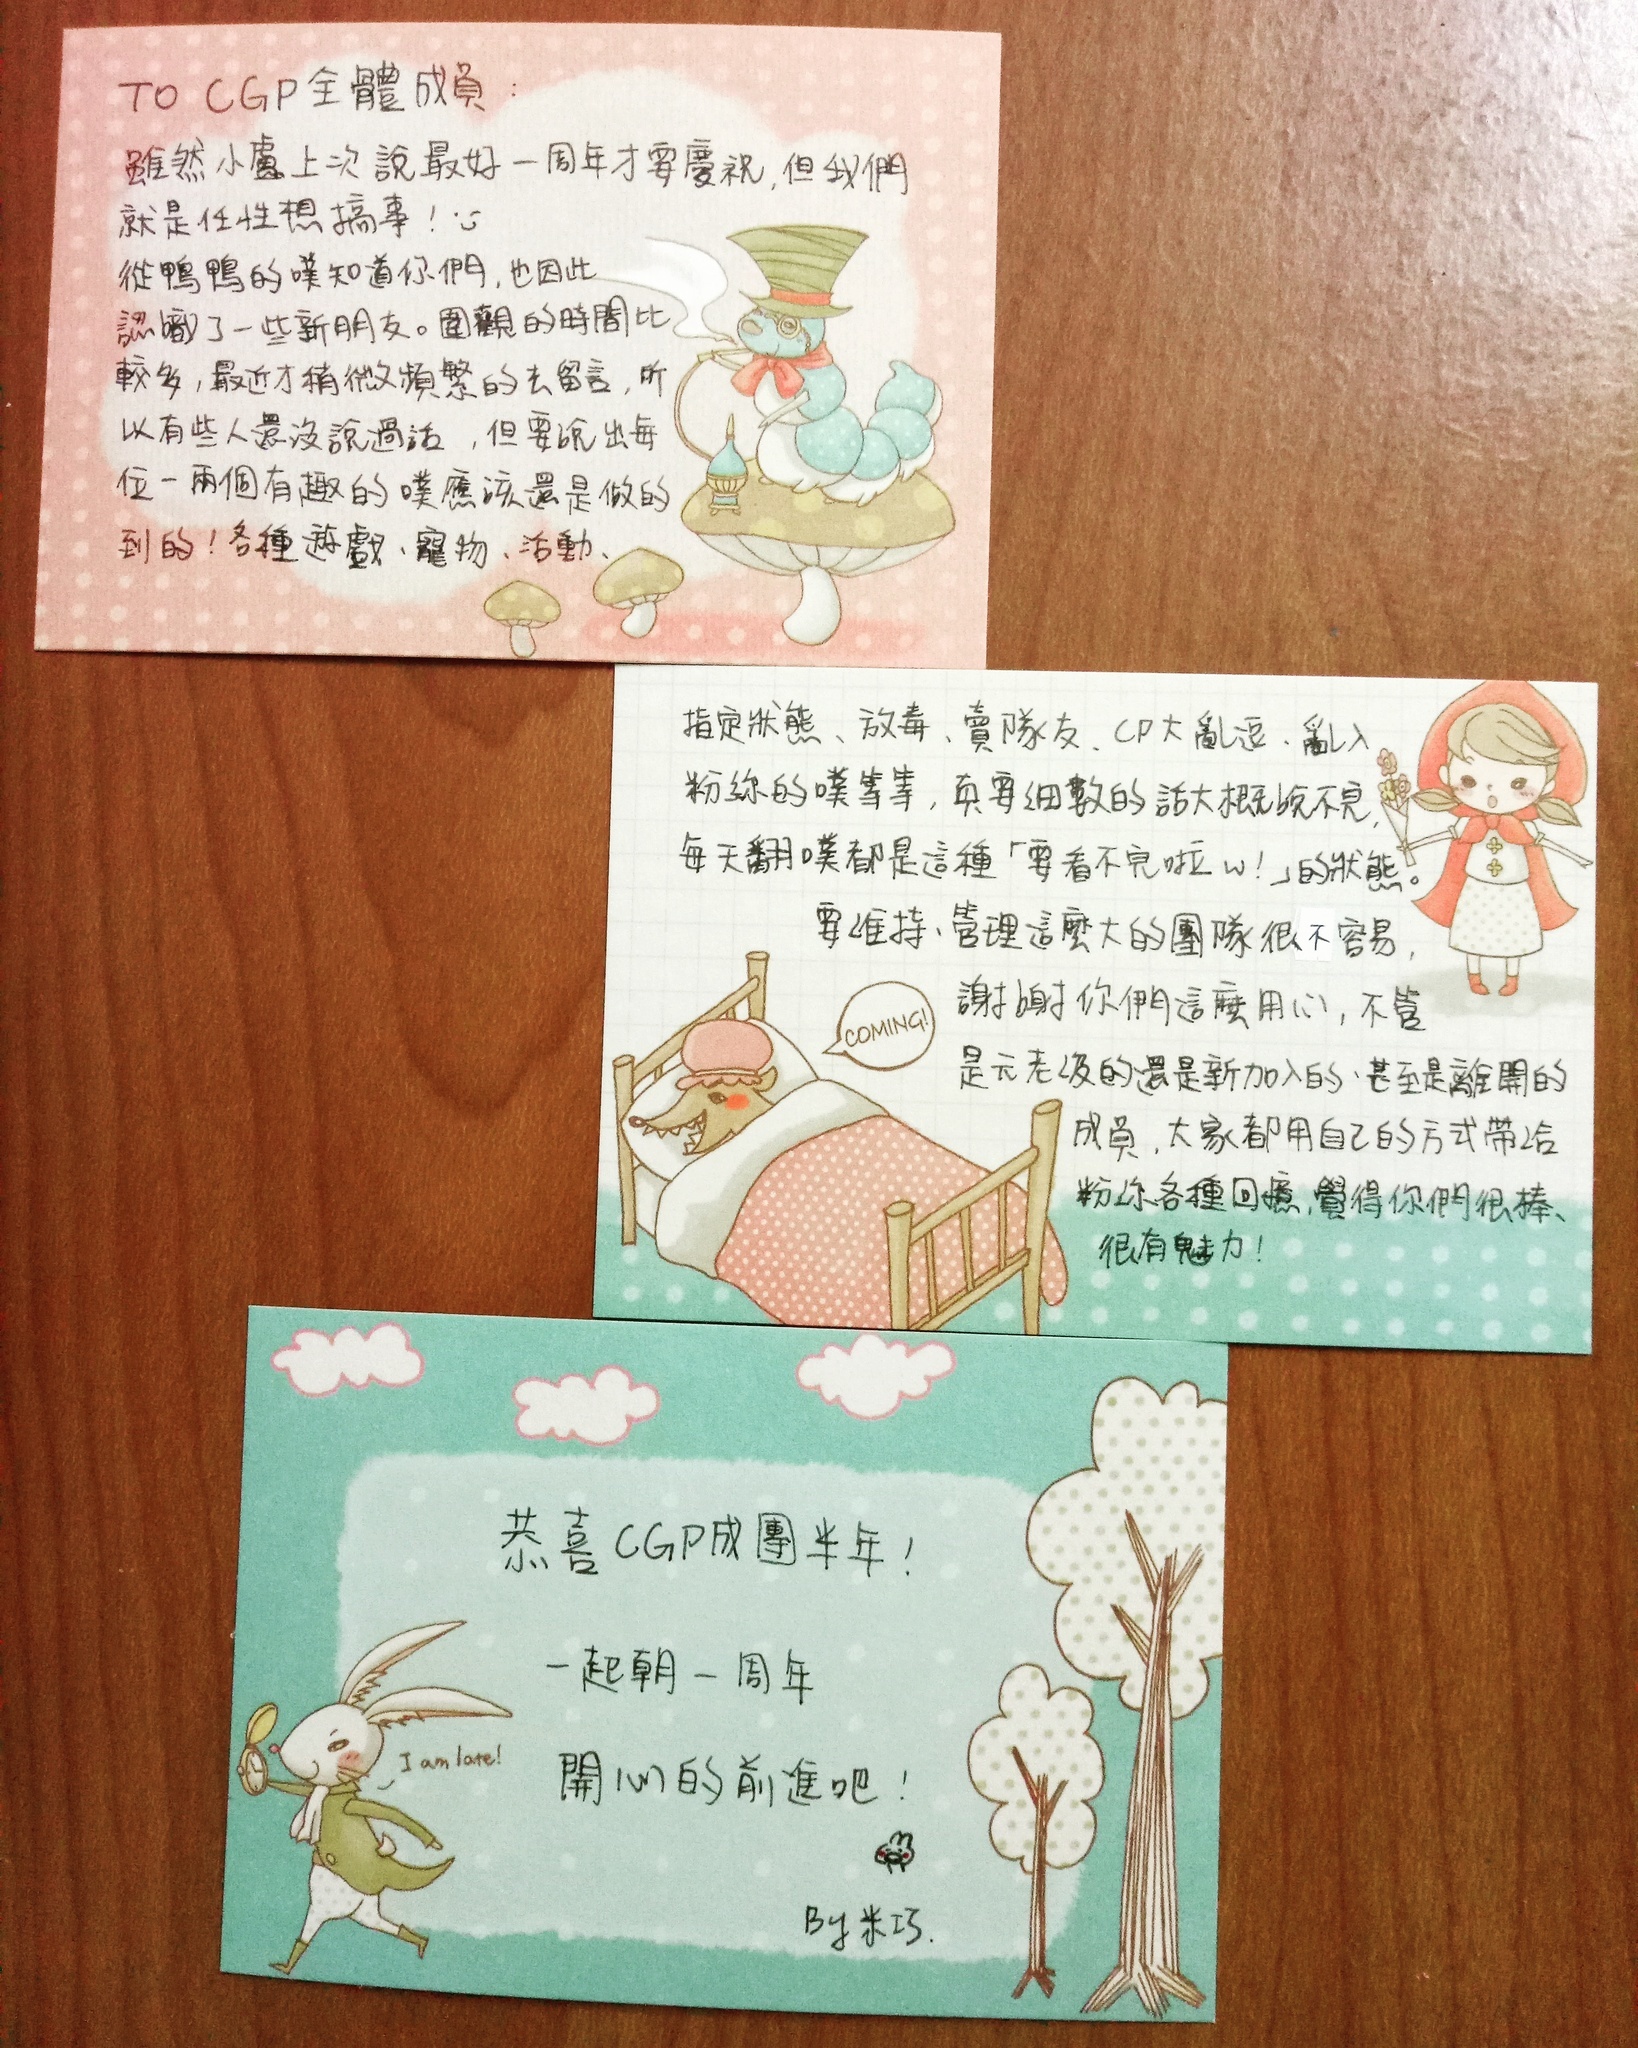 TO CGP全體成員：
雖然小盧上次說最好一周年才要慶祝，但我們
就是任性想搞事！:)
從鴨鴨的噗知道你們，也因此
認識了一些新朋友。圍觀的時間比
較多，最近才稍微頻繁的去留言，所
以有些人還沒說過話，但要說出每
位一兩個有趣的噗應該還是做的
到的！各種遊戲、寵物、活動、
指定狀態、放毒、賣隊友、CP大亂逗、亂入
粉絲的噗等等，真要細數的話大概說不完，
每天翻噗都是這種「要看不完啦w！」的狀態。
要維持、管理這麼大的團隊很不容易，
謝謝你們這麼用心，不管
是元老級的還是新加入的、甚至是離開的
成員，大家都用自己的方式帶給
粉絲各種回憶，覺得你們很棒、
很有魅力！
COMING!
恭喜CGP成團半年！
一起朝一周年
開心的前進吧！
I am late!
By米巧.